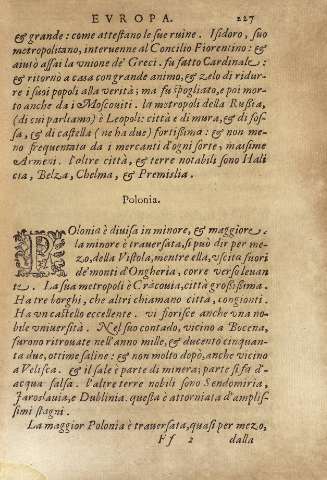 EVROPA. 227
& grande: come attestano le sue ruine. Isidoro, suo
metropolitano, interuenne al Concilio Fiorentino: &
aiutò assai la unione de' Greci. fu fatto Cardinale:
& ritornò a casa con grande animo, & zelo di ridur-
re i suoi popoli alla verità; ma fu spogliato, e poi mor-
to anche da i Moscouiti. la metropoli della Rußia,
(di cui parliamo) è Leopoli: città e di mura, & di fos-
sa, & di castella (ne ha due) fortißima: & non me-
no frequentata da i mercanti d'ogni sorte, maßime
Armeni. l'altre città, & terre notabili sono Hali
cia, Belza, Chelma, & Premislia.
Polonia.
POlonia è diuisa in minore, & maggiore.
la minore è trauersata, si può dir per me-
zo, della Vistola, mentre ella, vscita fuori
de' monti d'Ongheria, corre verso leuan
te. La sua metropoli è Cracouia, città großißima.
Ha tre borghi, che altri chiamano città, congionti.
Ha vn castello eccellente. vi fiorisce anche vna no-
bile vniuersità. Nel suo contado, vicino a Bocena,
furono ritrouate nell'anno mille, & ducento cinquan-
ta due, ottime saline: & non molto dopò, anche vicino
a Velisca. & il sale è parte di minera; parte si fa d'
acqua salsa. l'altre terre nobili sono Sendomiria,
Iaroslauia, e Dublinia. questa è attorniata d'amplis-
simi stagni.
La maggior Polonia è trauersata, quasi per mezo,
Ff 2 dalla